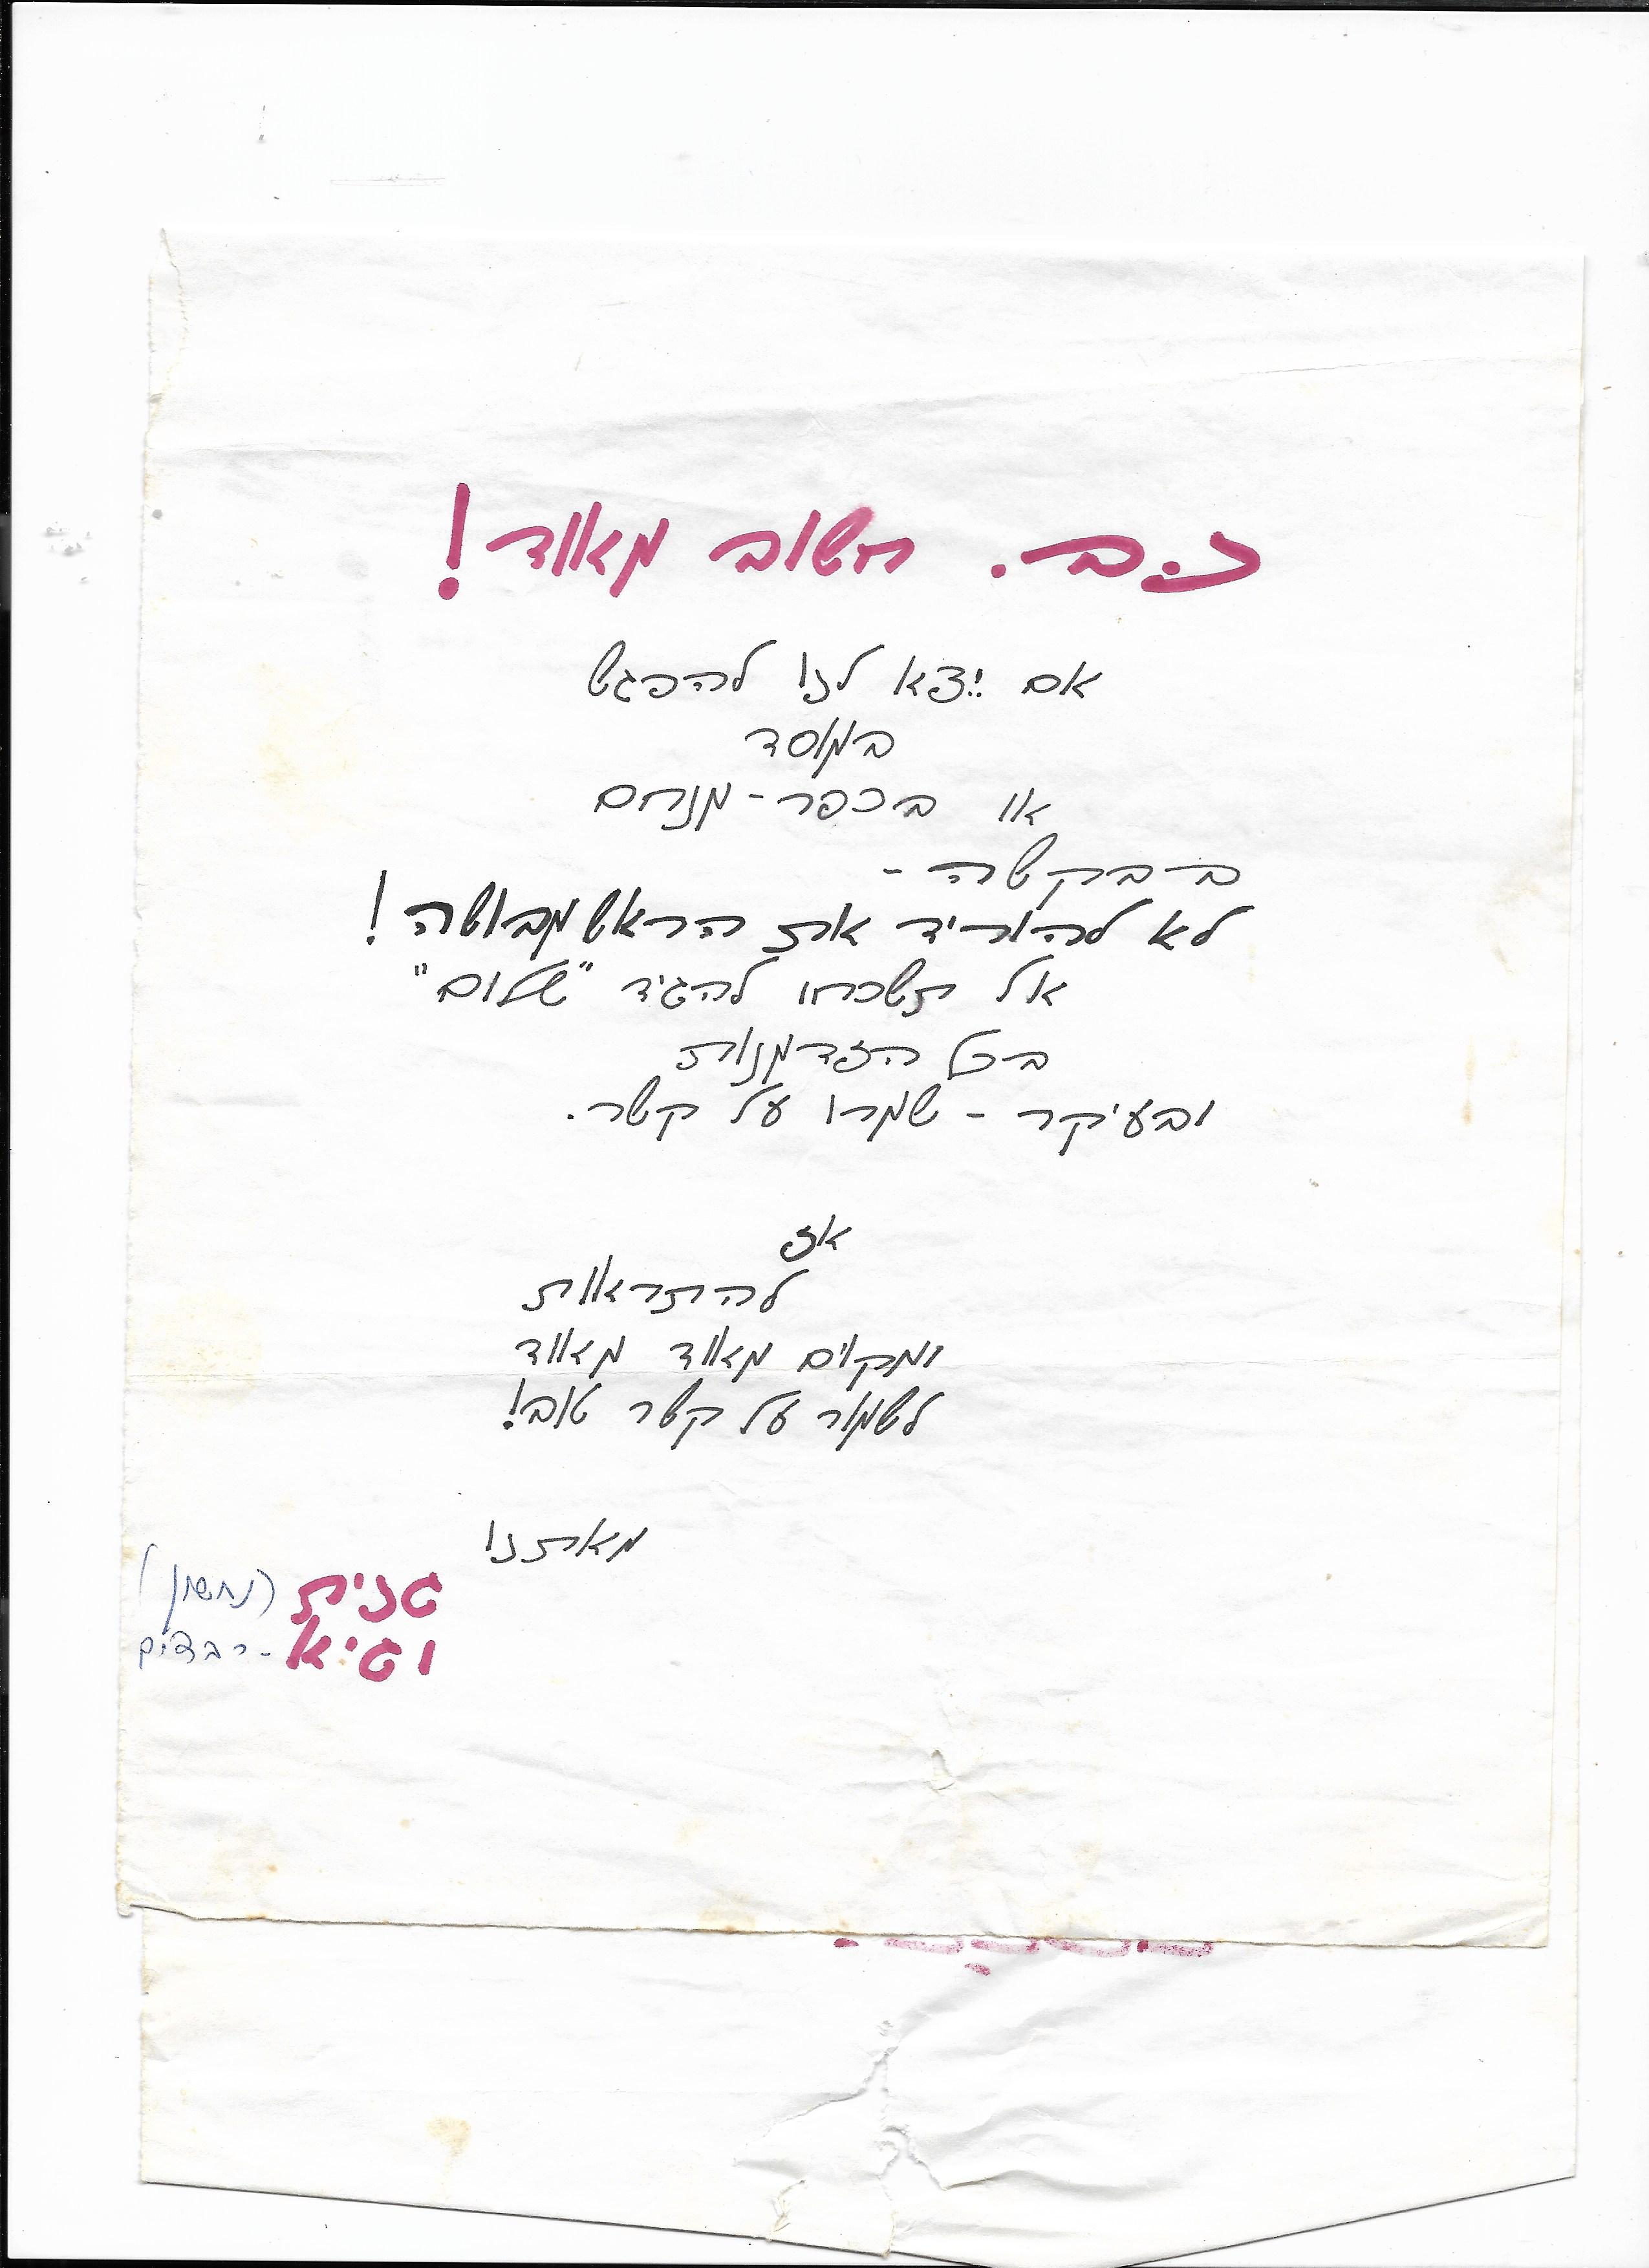 נ.ב. חשוב מאוד!
אם ייצא לנו להפגש
במוסד
או בכפר-מנחם
בבקשה -
לא להוריד את הראש מבושה!
אל תשכחו להגיד "שלום"
בכל הזדמנות
ובעיקר - שמרו על קשר.
אז
להתראות
ומקוים מאוד מאוד
לשמור על קשר טוב!
מאתנו
גנית (נחשון)
וגיא - רבדים